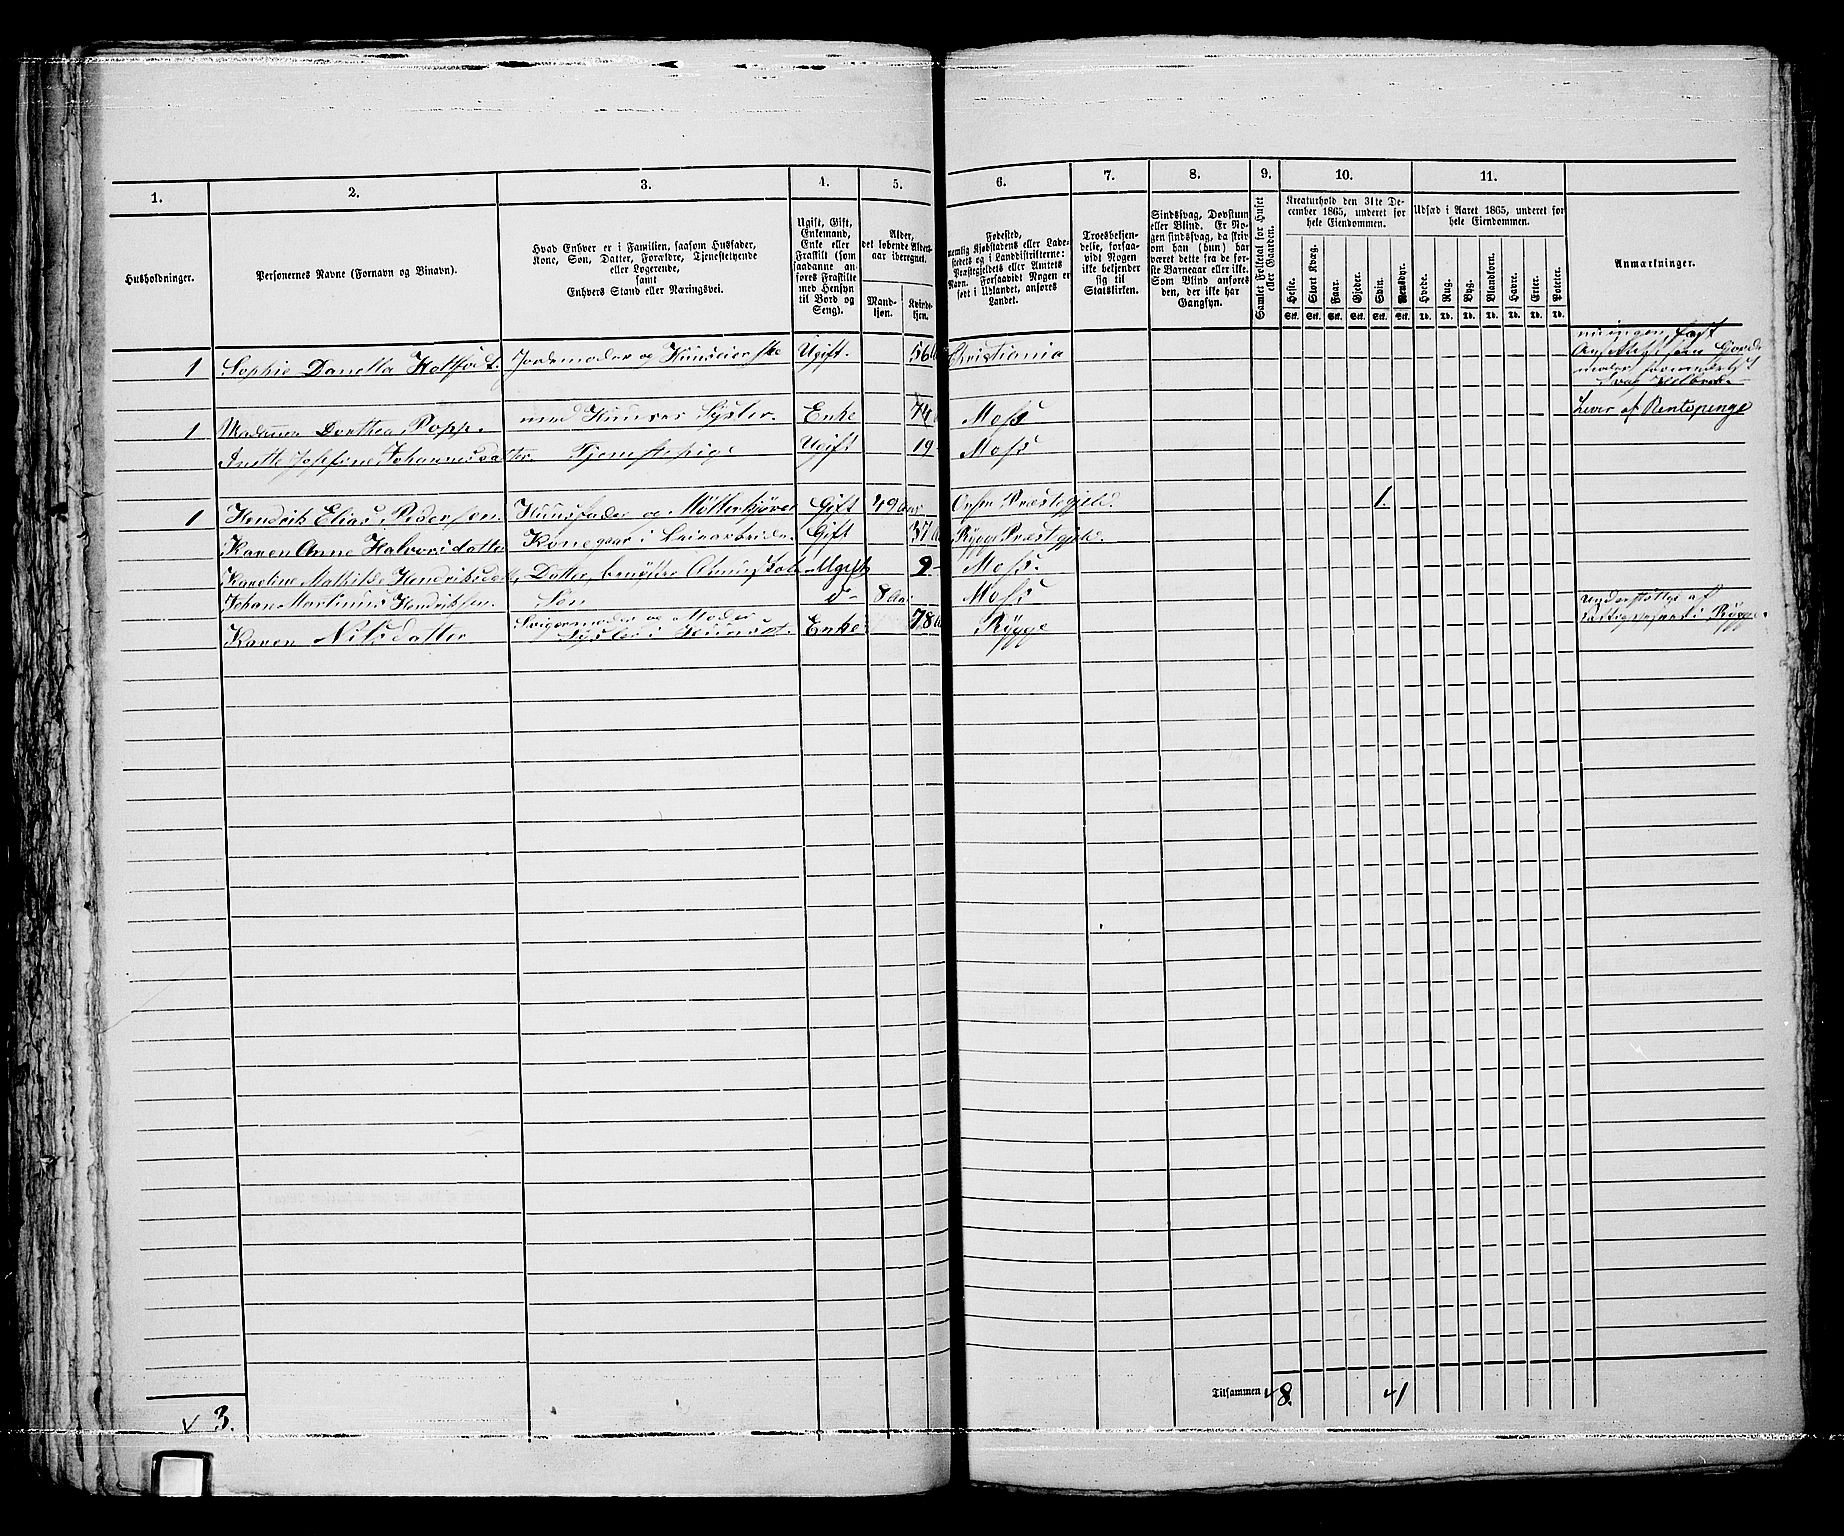 1. 2. 3. 4. 5. 6. 7. 8. 9. 10. 11.
Husholdninger.
Personernes Navne (Fornavn og Binavn).
Hvad Enhver er i Familien, saasom Husfader,
Kone, Søn, Datter, Forældre, Tjenestetyende
eller Logerende,
samt
Enhvers Stand eller Næringsvei.
Ugift, Gift,
Enkemand,
Enke eller
Fraskilt (som
saadanne an-
føres Fraskilte
med Hensyn
til Bord og
Seng).
Alder,
det løbende Alders-
aar iberegnet.
Mand-
kjøn.
Kvinde-
kjøn.
Fødested,
nemlig Kjøbstadens eller Lade-
stedets og i Landdistrikterne:
Præstegjeldets eller Amtets
Navn. Forsaavidt Nogen er
født i Udlandet, anføres
Landet.
Troesbekjen-
delse, forsaa-
vidt Nogen
ikke bekjender
sig til
Statskirken.
Sindssvag, Døvstum
eller Blind. Er No-
gen sindssvag, da skriv
om han (hun) har
været dette fra de før-
ste Barneaar eller ikke.
Som Blind anføres
den, der ikke har
Gangsyn.
Samlet Folketal for Huset
eller Gaarden.
Kreaturhold den 31te De-
cember 1865, underet for
hele Eiendommen.
Heste. Stort Kvæg. Faar. Gjeder. Svin. Rensdyr.
Stk. Stk. Stk. Stk. Stk. Stk.
Udsæd i Aaret 1865, underet for
hele Eiendommen.
Hvede. Rug. Byg. Blandkorn. Havre. Erter. Poteter.
Td. Td. Td. Td. Td. Td. Td.
Anmærkninger.
1 Sophie Danella Ugift. 56 Christiania
1 Madame Dorthea Popp. Syster. Enke 74 Moss Lever af Rentepenge
Anette Josefine Johannesdatter. Tjenestepige Ugift 19 Moss
1 Hendrik Elias Pedersen. Huusfader og Gift 49 Aar Præstegjeld. 1.
Karen Anne Halvorsdatter Kone Gift 37 Rygge Præstegjeld.
Karoline Mathilde Datter, Ugift 9 Moss.
Johan Martinus Hendriksen. Søn d- 8 Aar Moss
Karen Nilsdatter Svigermoder og Moder
Syster i Huuset. Enke 78 Rygge Understøttes af
Fattigvæsenet i Rygge.
3. Tilsammen 8. 1